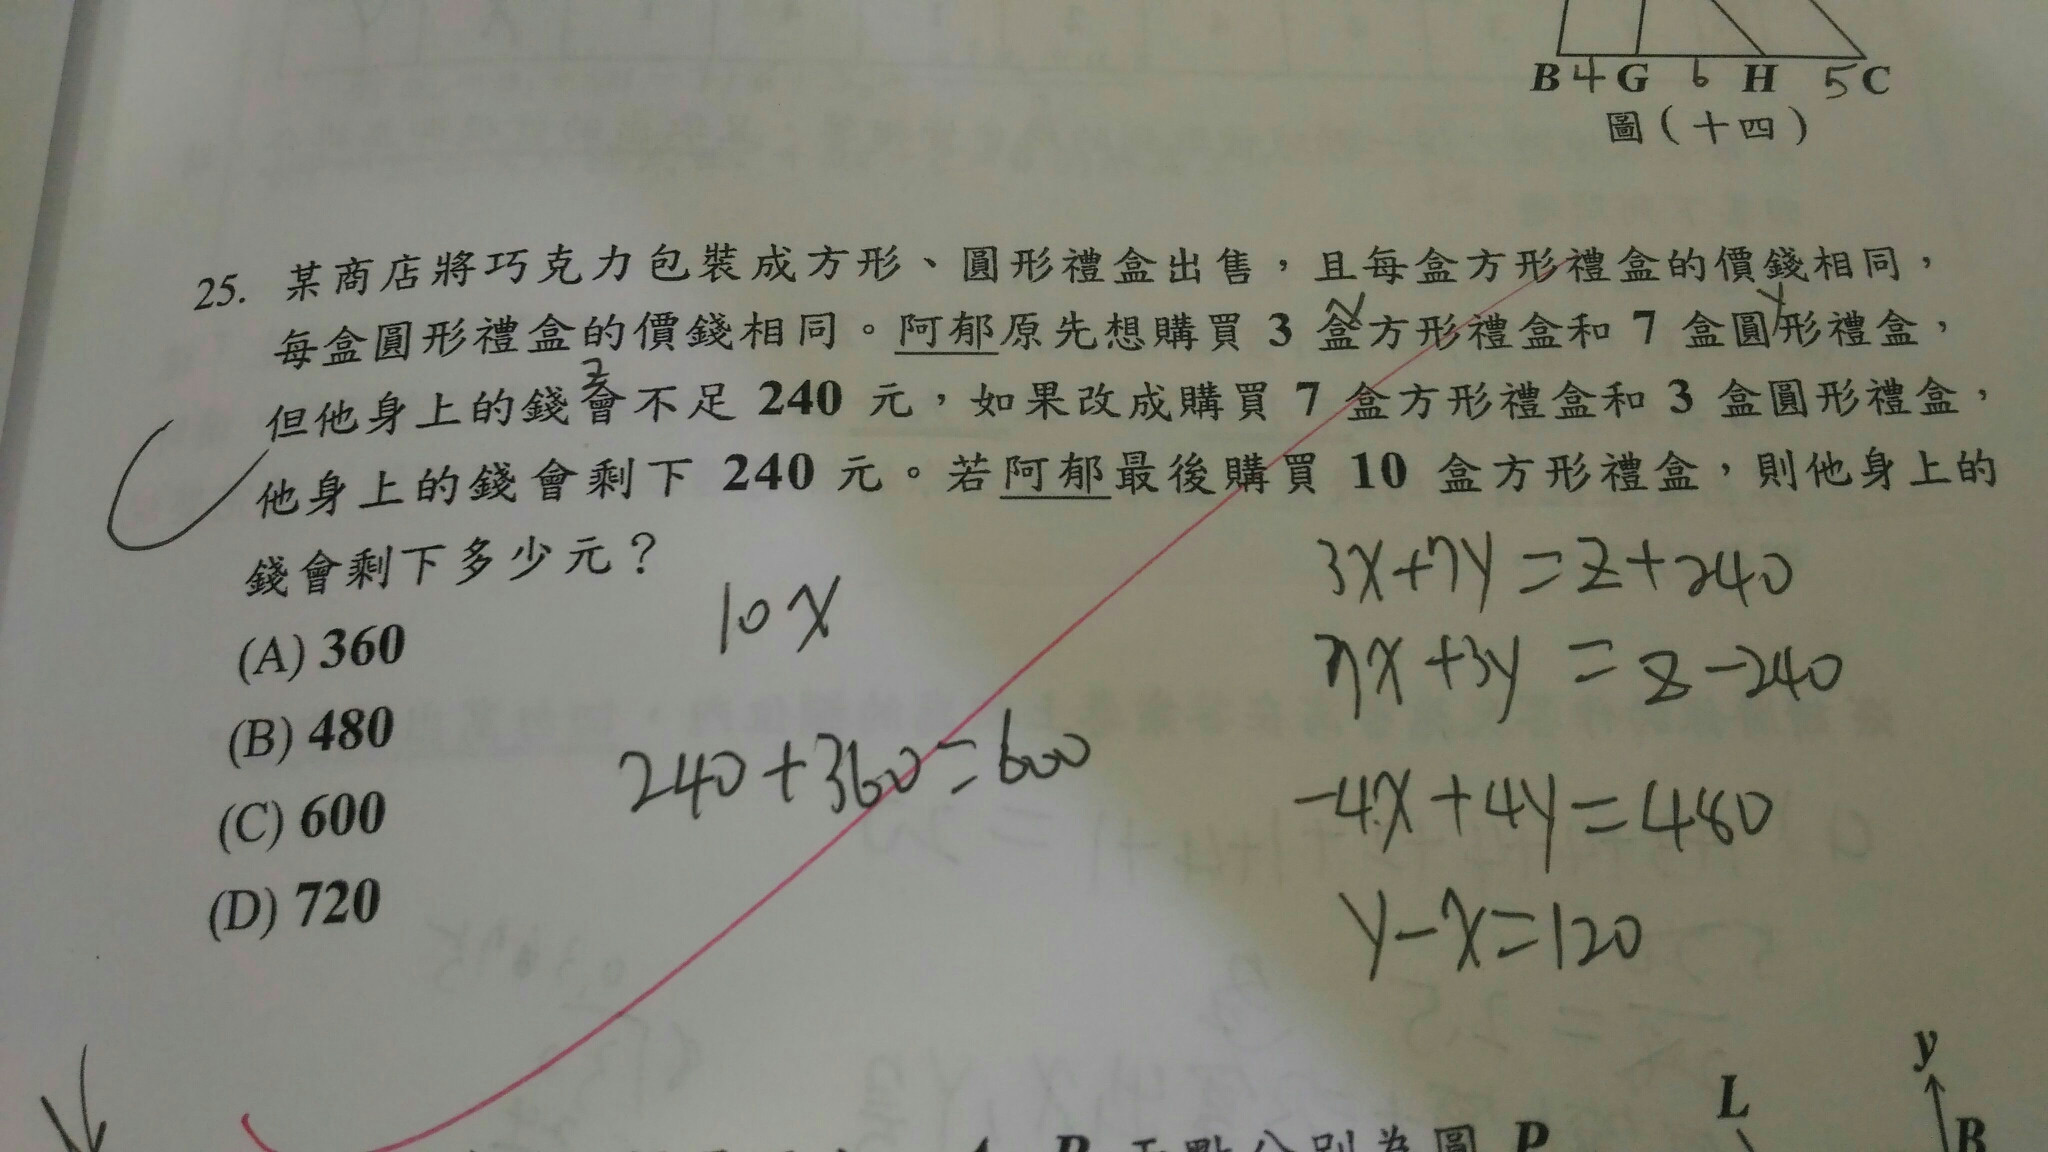 B 4 G 6 H 5 C
圖(十四)
25. 某商店將巧克力包裝成方形、圓形禮盒出售,且每盒方形禮盒的價錢相同,
x y
每盒圓形禮盒的價錢相同。阿郁原先想購買 3 盒方形禮盒和 7 盒圓形禮盒,
z
但他身上的錢會不足 240 元,如果改成購買 7 盒方形禮盒和 3 盒圓形禮盒,
他身上的錢會剩下 240 元。若阿郁最後購買 10 盒方形禮盒,則他身上的
錢會剩下多少元?
C
(A) 360
(B) 480
(C) 600
(D) 720
10x
240+360=600
3x+7y=z+240
7x+3y=z-240
-4x+4y=480
y-x=120
y
L
B